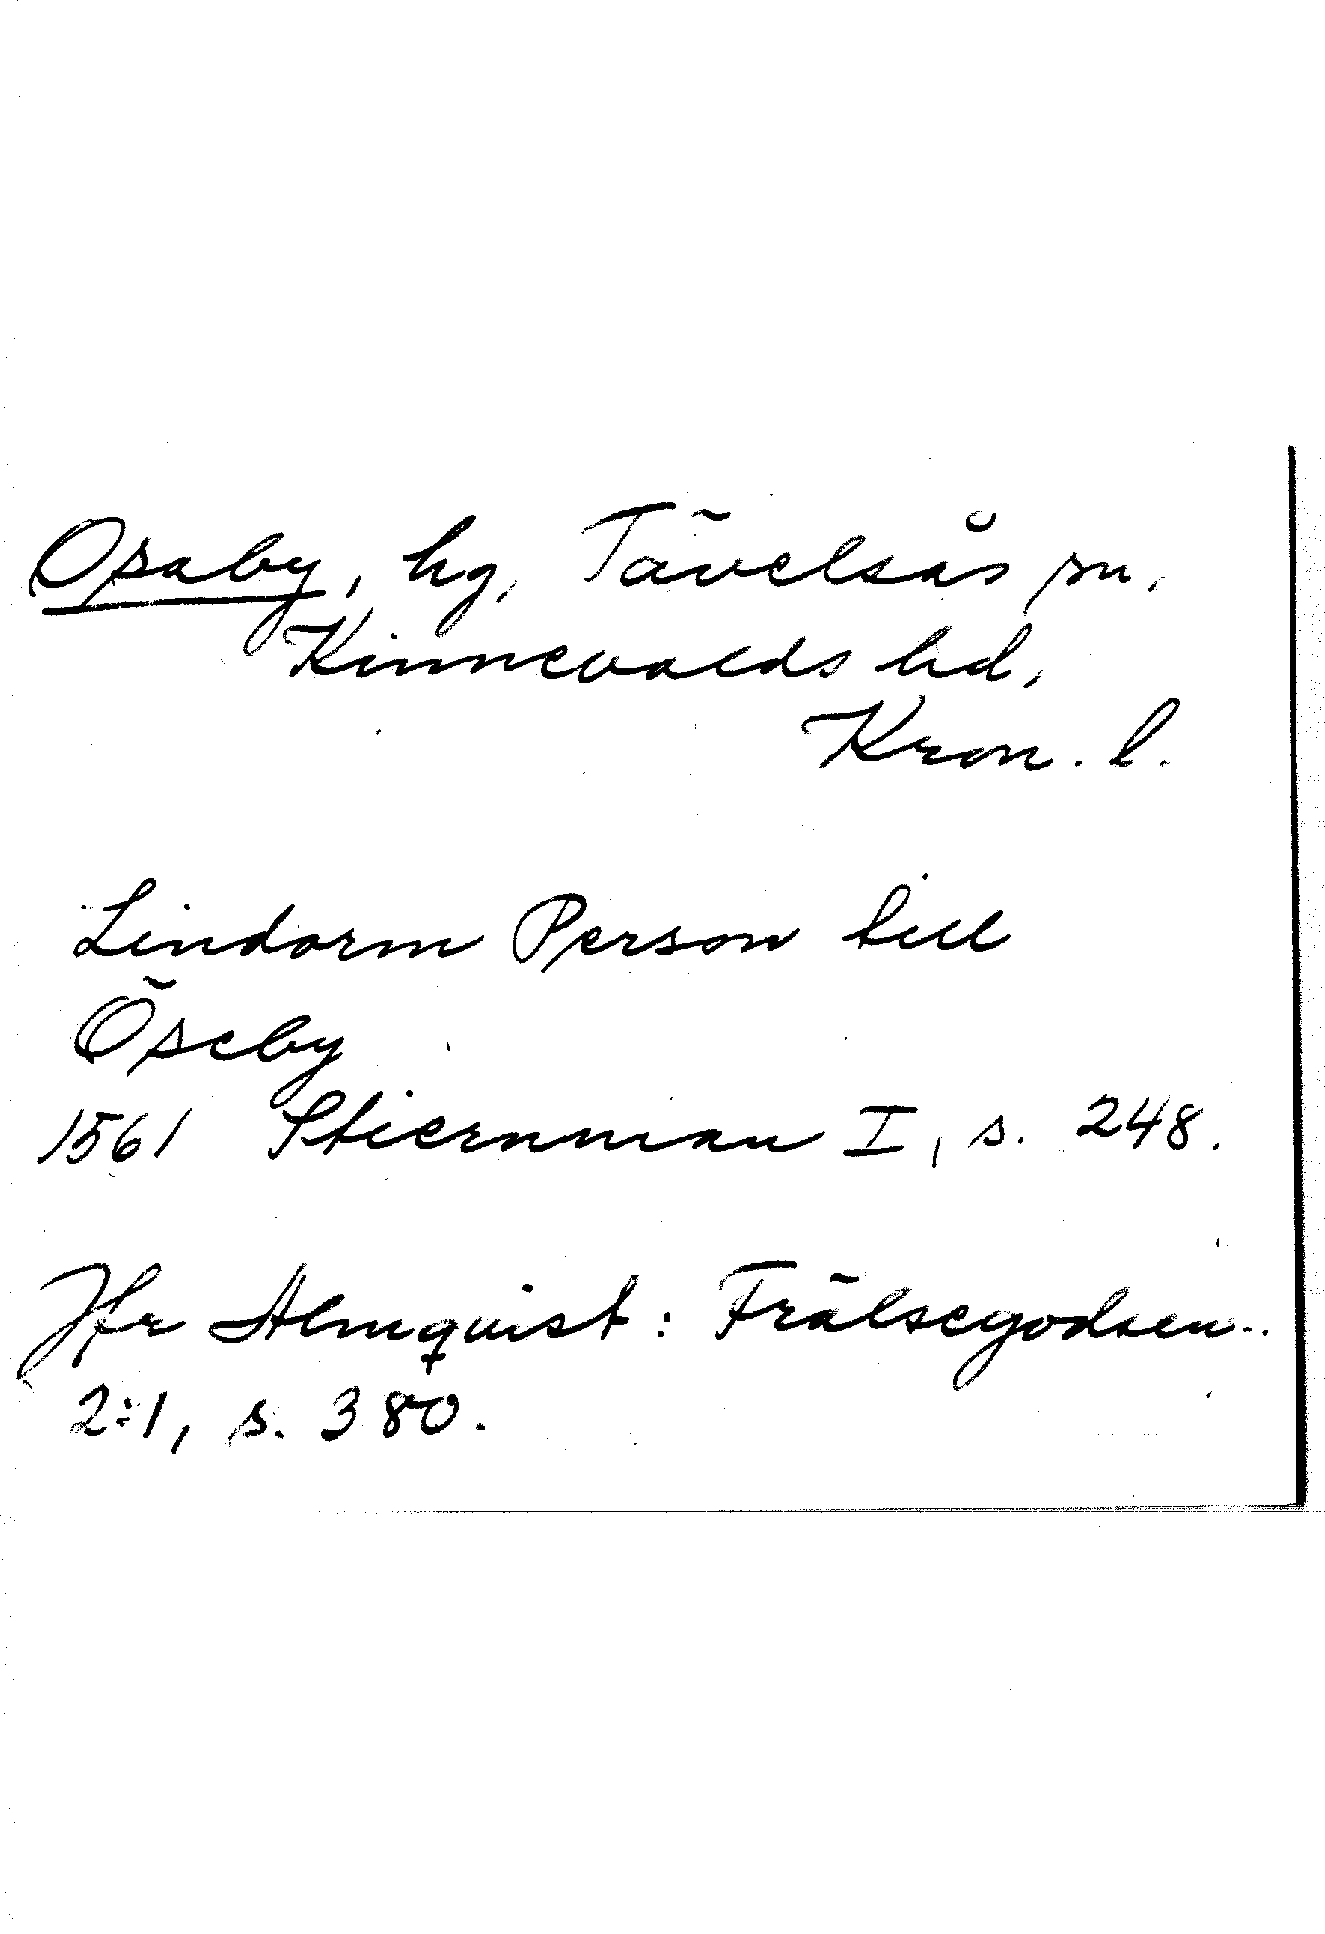 Osaby, hg, Tävelsås sn,
Kinnevalds hd,
Kron. l.
Lindorm Person till
Öseby
1561 Stiernman I, s. 248.
Jfr Almquist: Frälsegodsen..
2:1, s. 380.